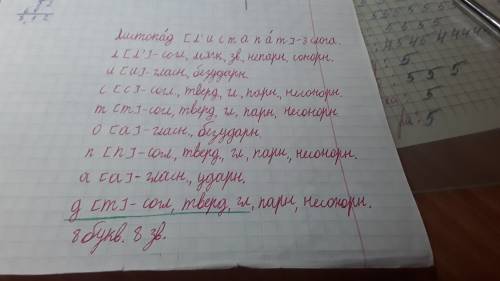 Листопа́д [л' и с т а п а́ т] - 3 слога.
л [л'] - согл, мягк, зв, непарн, сонорн.
и [и] - гласн, безударн.
с [с] - согл, тверд, гл, парн, несонорн.
т [т] - согл, тверд, гл, парн, несонорн
о [а] - гласн., безударн.
п [п] - согл., тверд., гл, парн., несонорн.
а [а] - гласн., ударн.
д [т] - согл, тверд, гл, парн, несонорн.
8 букв. 8 зв.
5
5 5 5
5